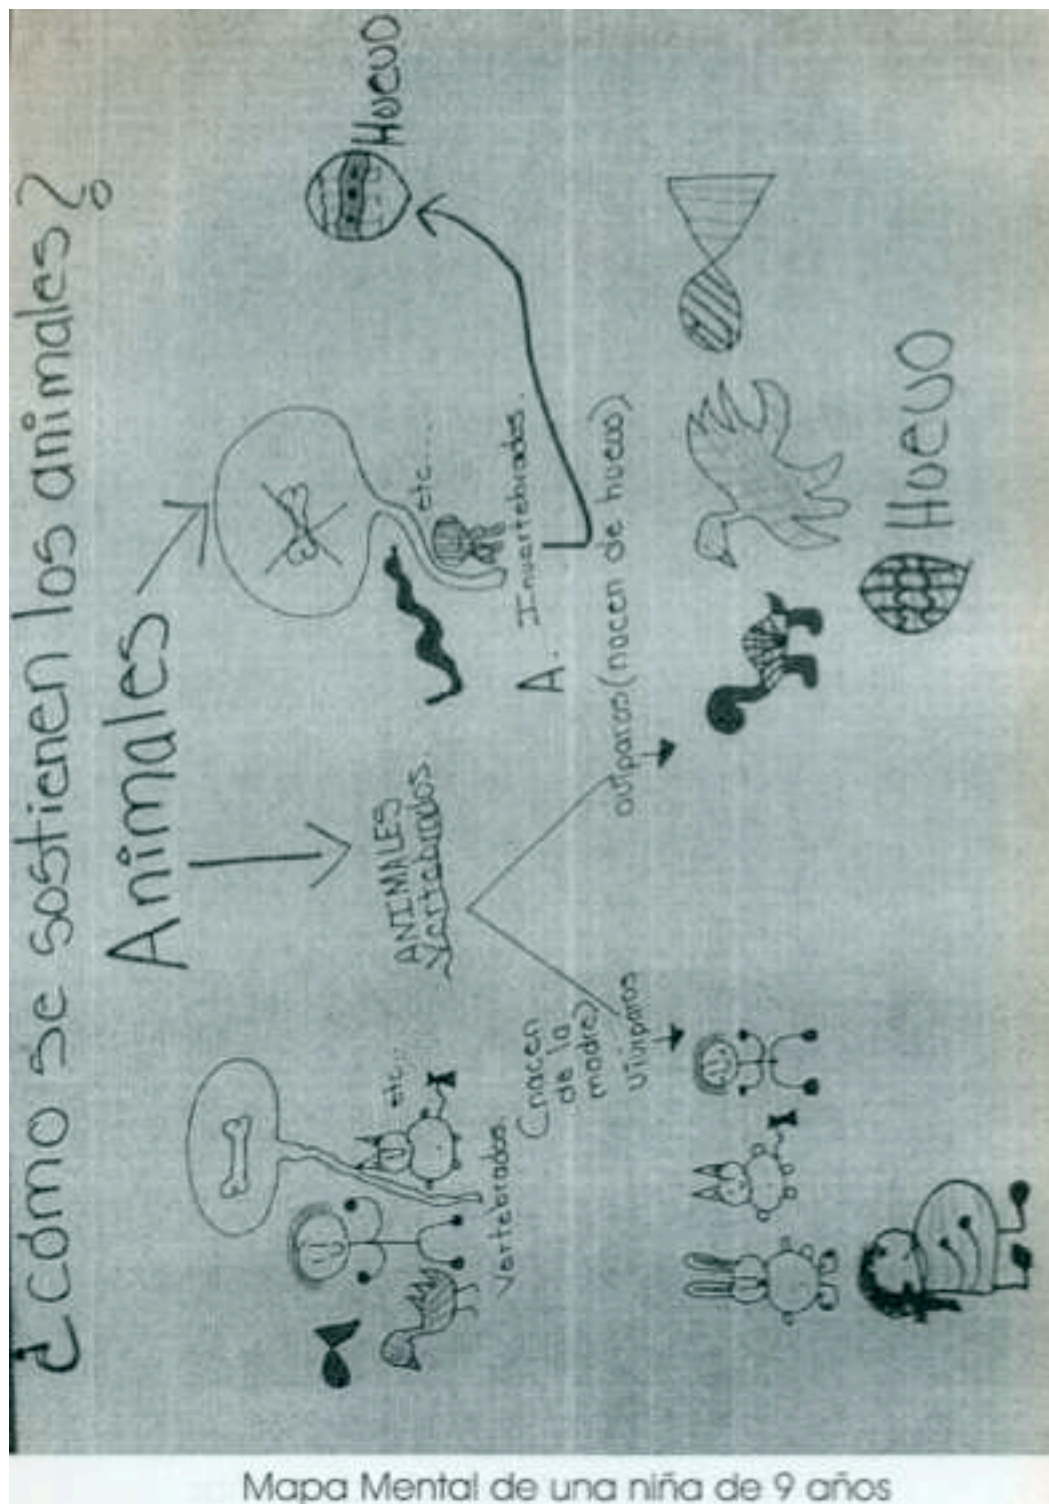 ¿cómo se sostienen los animales?
Animales
etc...
Vertebrados.
ANIMALES
Vertebrados.
etc...
A. Invertebrados.
Huevo
(nacen
de la
madre)
vivíparos
ovíparos (nacen de huevo)
Huevo
Mapa Mental de una niña de 9 años